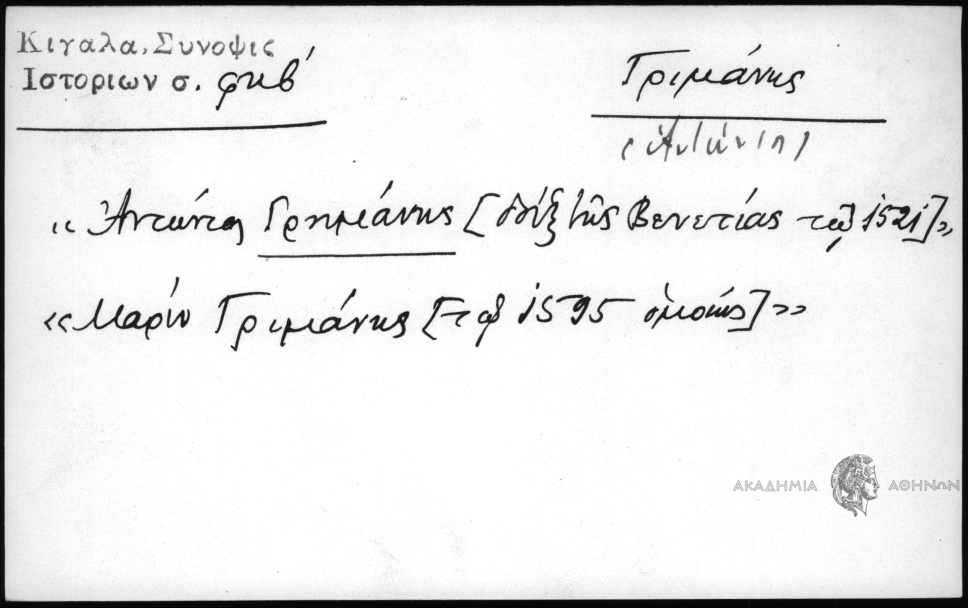 Κιγαλα, Συνοψις
Ιστοριων σ. φκβ'
Γριμάνης
(Ἀντώνιη)
«Ἀντώνιος Γρημάνης [δόξ τῆς Βενετίας τῷ 1521]»
«Μαρίν Γριμάνης [τῷ 1595 ὁμοίως]»
ΑΚΑΔΗΜΙΑ ΑΘΗΝΩΝ